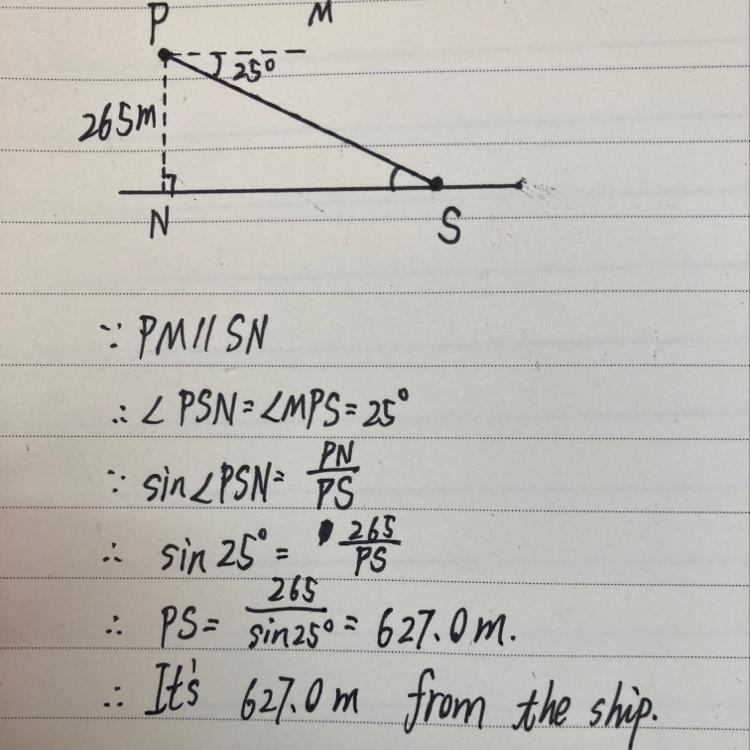 P M
25°
265m
N S
∵ PM // SN
∴ ∠PSN = ∠MPS = 25°
∵ sin∠PSN = PN/PS
∴ sin 25° = 265/PS
∴ PS = 265/sin25° = 627.0m.
∴ It's 627.0m from the ship.